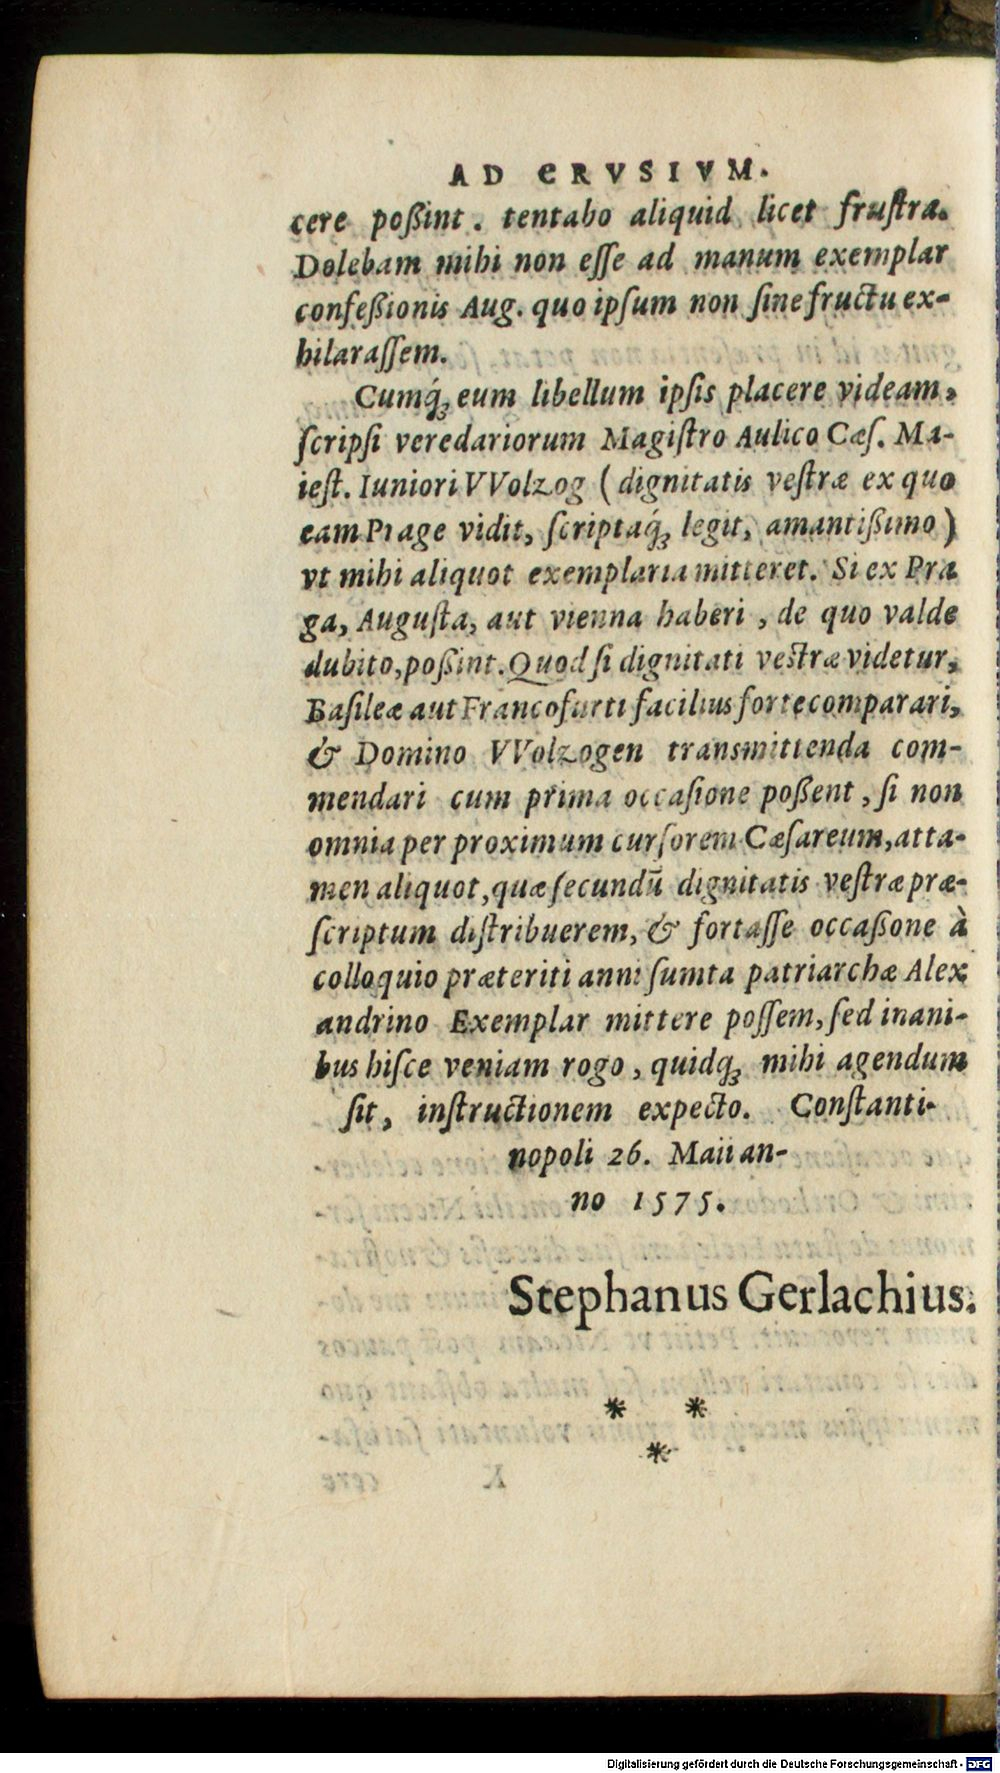 AD CRVSIVM.
cere poßint. tentabo aliquid licet frustra.
Dolebam mihi non esse ad manum exemplar
confeßionis Aug. quo ipsum non sine fructu ex-
hilarassem.
Cumq́ꝫ eum libellum ipsis placere videam,
scripsi veredariorum Magistro Aulico Cæs. Ma-
iest. Iuniori VVolzog (dignitatis vestræ ex quo
eam Prage vidit, scriptaq́ꝫ legit, amantißimo)
vt mihi aliquot exemplaria mitteret. Si ex Pra
ga, Augusta, aut vienna haberi, de quo valde
dubito, poßint. Quod si dignitati vestræ videtur,
Basileæ aut Francofurti facilius forte comparari,
& Domino VVolzogen transmittenda com-
mendari cum prima occasione poßent, si non
omnia per proximum cursorem Cæsareum, atta-
men aliquot, quæ secundū dignitatis vestræ præ-
scriptum distribuerem, & fortasse occaßone à
colloquio præteriti anni sumta patriarchæ Alex
andrino Exemplar mittere possem, sed inani-
bus hisce veniam rogo, quidqꝫ mihi agendum
sit, instructionem expecto. Constanti-
nopoli 26. Maii an-
no 1575.
Stephanus Gerlachius.
* *
*
Digitalisierung gefördert durch die Deutsche Forschungsgemeinschaft - DFG